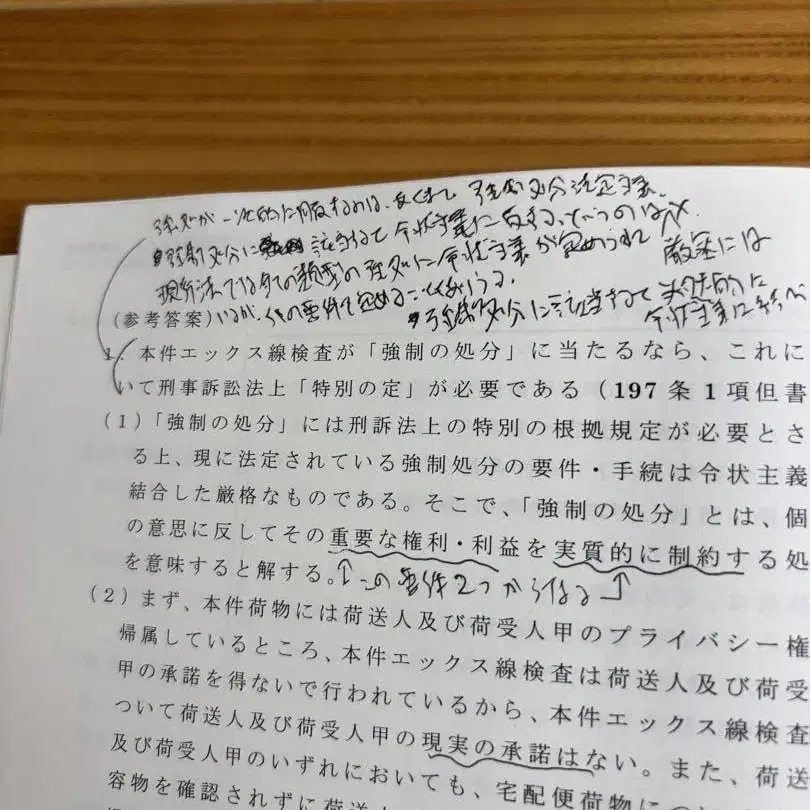 強処が一次的に服するのは、あくまで強制処分法定主義、
強制処分に該当して令状主義に反する、ていうのは×.
現行法では全ての類型の強処に令状主義が定められて 厳密には
いるが、 強制処分に該当するて
(参考答案)
1. 本件エックス線検査が「強制の処分」に当たるなら、これに
いて刑事訴訟法上「特別の定」が必要である(197 条 1 項但書
(1)「強制の処分」には刑訴法上の特別の根拠規定が必要とさ
る上、現に法定されている強制処分の要件・手続は令状主義
結合した厳格なものである。そこで、「強制の処分」とは、個
の意思に反してその重要な権利・利益を実質的に制約する処
を意味すると解する。↑この要件2つからなる↑
(2)まず、本件荷物には荷送人及び荷受人甲のプライバシー権
帰属しているところ、本件エックス線検査は荷送人及び荷受
甲の承諾を得ないで行われているから、本件エックス線検査
ついて荷送人及び荷受人甲の現実の承諾はない。また、荷送
及び荷受人甲のいずれにおいても、宅配便荷物に
容物を確認されずに荷送